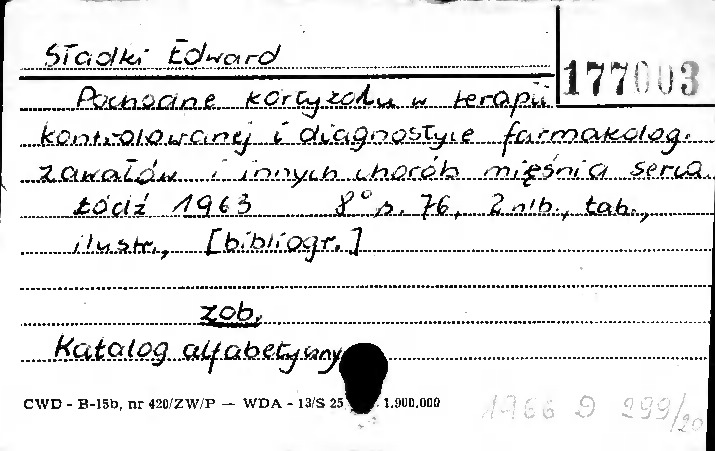 Sładki Edward
177003
Pochodne kortyzolu w terapii
kontrolowanej i diagnostyce farmakolog.
zawałów i innych chorób mięśnia serca.
Łódź 1963 8° s. 76, 2 nlb., tab.,
ilustr., [bibliogr.]
zob.
Katalog alfabetyczny
CWD - B-15b, nr 420/ZW/P — WDA - 13/S 25 1.900.000
1966 D 299/20